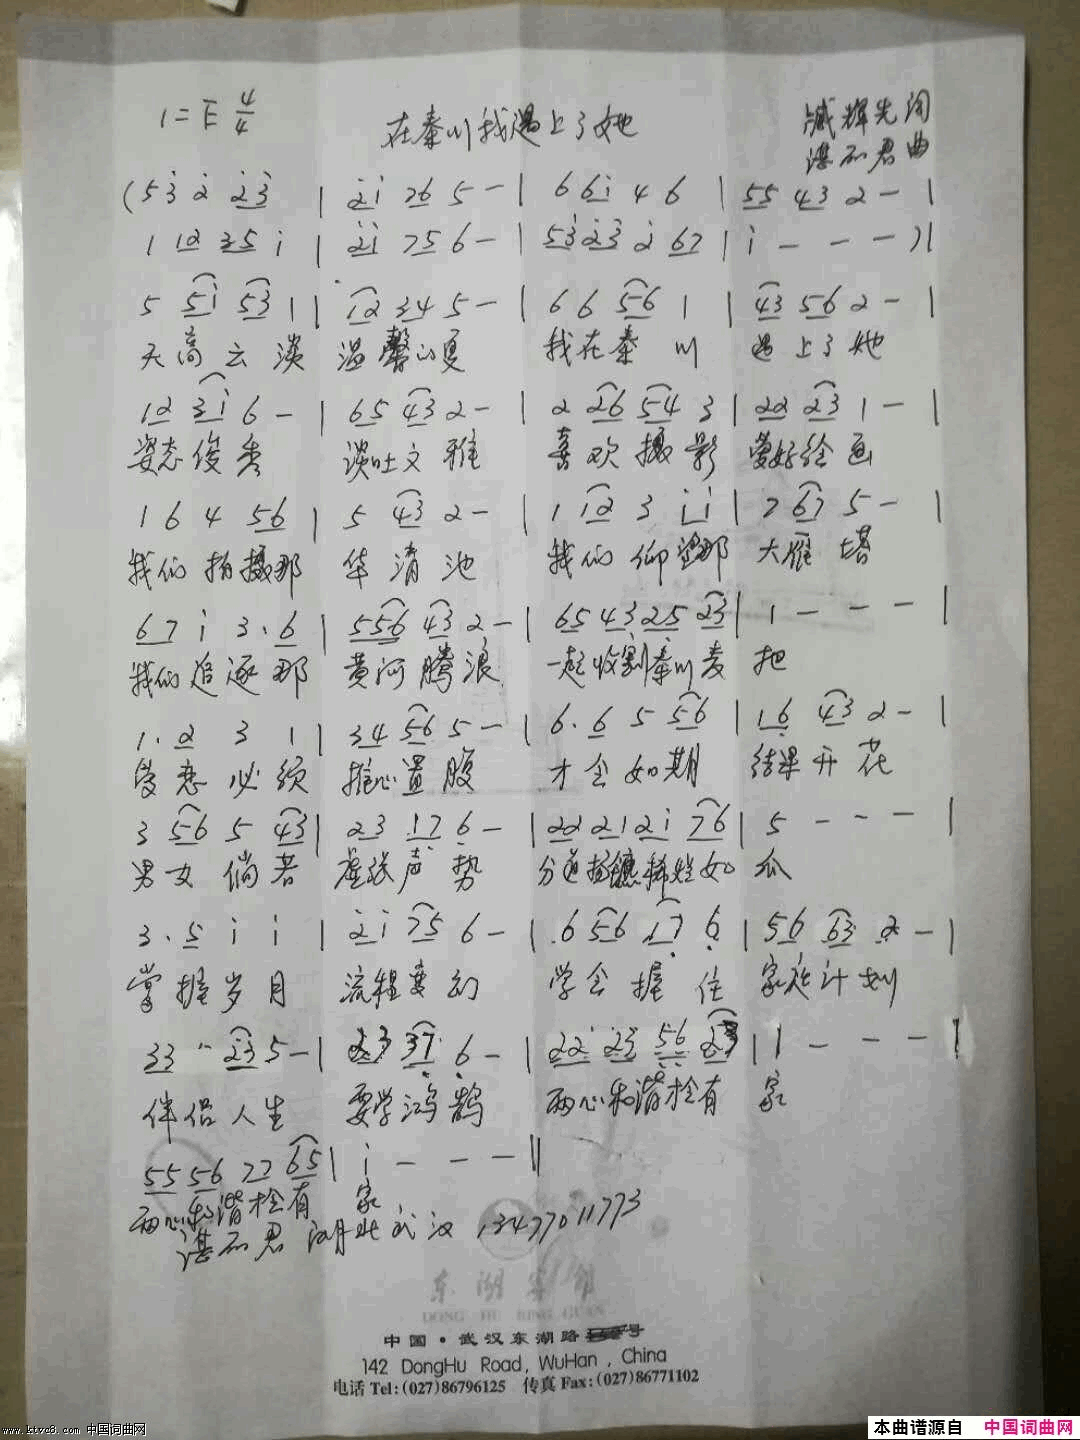 1=E 4/4
在秦川我遇上了她
臧辉先词
谌丕君曲
(5 3̇ 2̇ 2̇3̇ | 2̇1̇ 76 5 - | 6 61̇ 4 6 | 55 43 2 - |
1 12 35 1̇ | 2̇1̇ 75 6 - | 53̇ 2̇3̇ 2̇ 67 | 1̇ - - - )|
5 51̇ 53 1 | 12 34 5 - | 6 6 56 1 | 43 56 2 - |
天高云淡 温馨的夏 我在秦川 遇上了她
12 31 6 - | 65 43 2 - | 2 26 54 3 | 22 23 1 - |
姿态俊秀 谈吐文雅 喜欢摄影 爱好绘画
1 6 4 56 | 5 43 2 - | 1 12 3 1̇1̇ | 7 67 5 - |
我们拍摄那 华清池 我们仰望那 大雁塔
67 1̇ 3. 6 | 556 43 2 - | 65 43 25 23 | 1 - - - |
我们追逐那 黄河腾浪 一起收割秦川麦 把
1. 2 3 1 | 34 56 5 - | 6. 6 5 56 | 16 43 2 - |
爱恋必须 推心置腹 才会如期 结果开花
3 56 5 43 | 23 17 6 - | 22 21 21 76 | 5 - - - |
男女倘若 虚张声势 分道扬镳稀烂如 瓜
3. 5 1̇ 1̇ | 2̇1̇ 75 6 - | 6 56 17 6 | 56 63 2 - |
掌握岁月 流程变幻 学会握住 家庭计划
33 23 5 - | 23 37 6 - | 22 23 56 23 | 1 - - - |
伴侣人生 要学鸿鹄 两心和谐拴有 家
55 56 77 65 | 1̇ - - - ‖
两心和谐拴有 家
谌丕君 湖北武汉 13477011773
东湖宾馆
DONG HU BING GUAN
中国·武汉东湖路 号
142 DongHu Road, WuHan , China
电话 Tel:(027)86796125 传真 Fax:(027)86771102
www.ktvc8.com 中国词曲网
本曲谱源自 中国词曲网